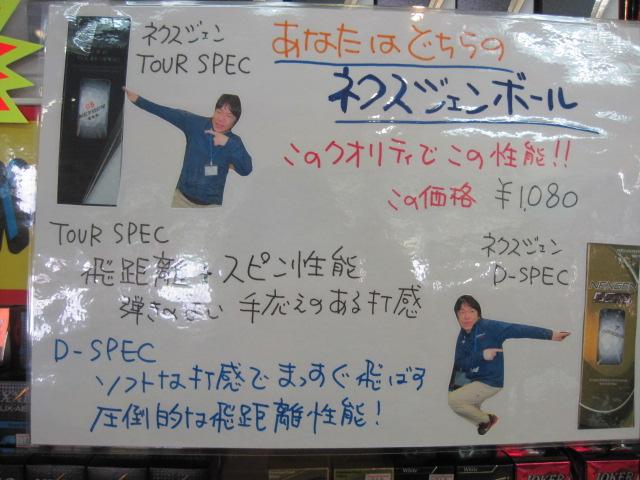 ネクスジェン
TOUR SPEC
あなたはどちらの
ネクスジェンボール
このクオリティでこの性能!!
この価格 ¥1,080
TOUR SPEC
飛距離+スピン性能
弾きのよい 手応えのある打感
ネクスジェン
D-SPEC
NEXGEN
D-SPEC
ソフトな打感でまっすぐ飛ばす
圧倒的な飛距離性能!
White
JOKER
JOKER